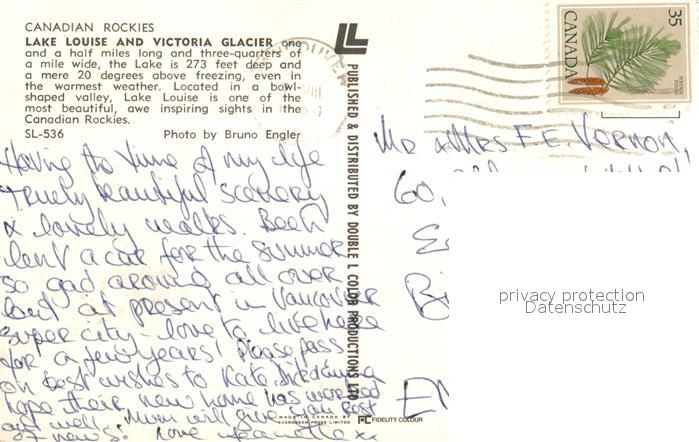 CANADIAN ROCKIES
LAKE LOUISE AND VICTORIA GLACIER one
and a half miles long and three-quarters of
a mile wide, the Lake is 273 feet deep and
a mere 20 degrees above freezing, even in
the warmest weather. Located in a bowl-
shaped valley, Lake Louise is one of the
most beautiful, awe inspiring sights in the
Canadian Rockies.
SL-536 Photo by Bruno Engler
Having the time of my life
truely beautiful scenery
& lovely walks. Been
lent a car for the summer
so gad around all over
but at present in Vancouver
super city - love to live here
for a few years! Please pass
on best wishes to Kate,
hope their new home has worked
out well. Mum will give you rest
of news. Love
xx
PUBLISHED & DISTRIBUTED BY DOUBLE L COLOR PRODUCTIONS LTD.
MADE IN CANADA BY
EVERGREEN PRESS LIMITED
FIDELITY COLOUR
CANADA 35
Mr & Mrs F.E. Vernon,
60,
privacy protection
Datenschutz